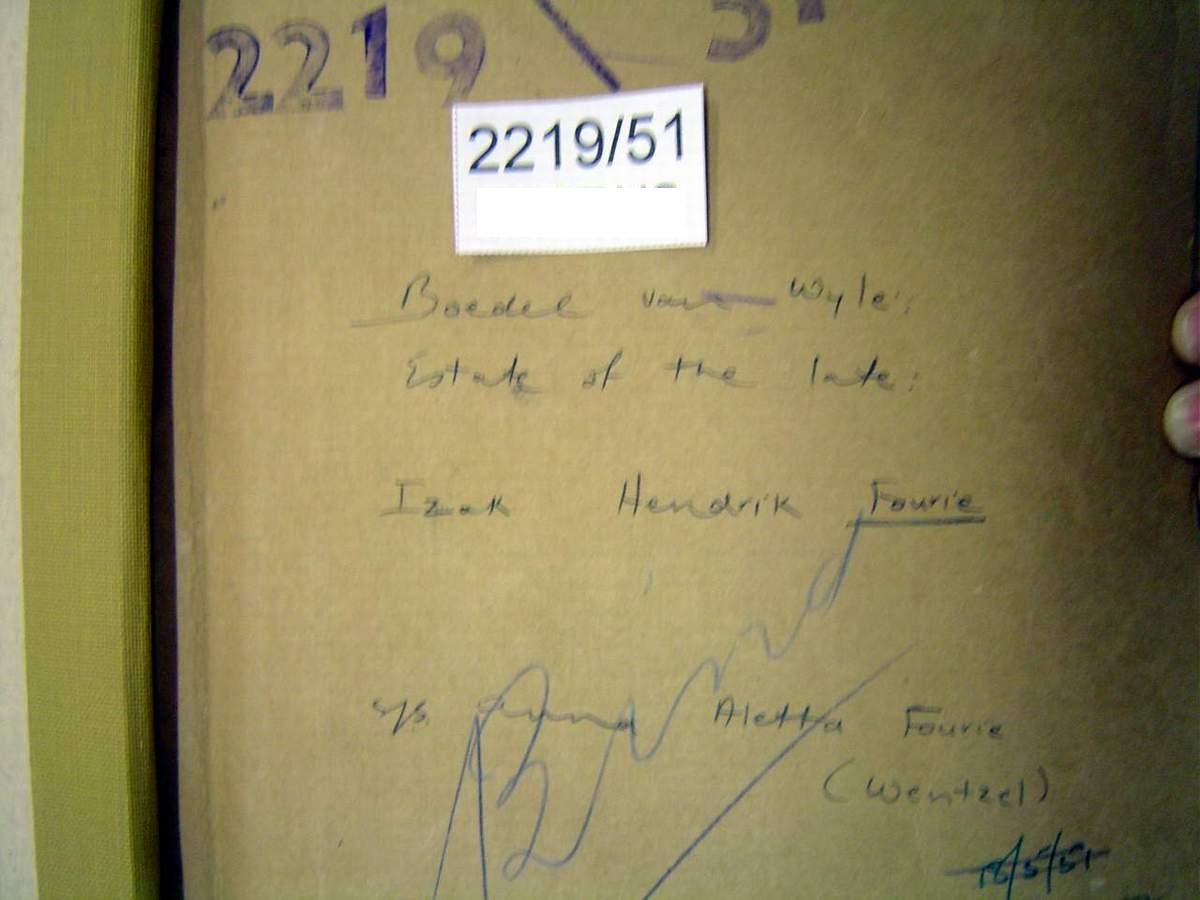 2219 51
2219/51
Boedel van Wyle:
Estate of the late:
Izak Hendrik Fourie
s/s. Anna Aletta Fourie
(Wentzel)
18/5/51